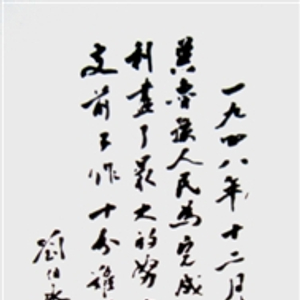 一九四八年十二月
冀鲁豫人民为完成
利盡了最大的努
支前工作十分雄
劉伯承